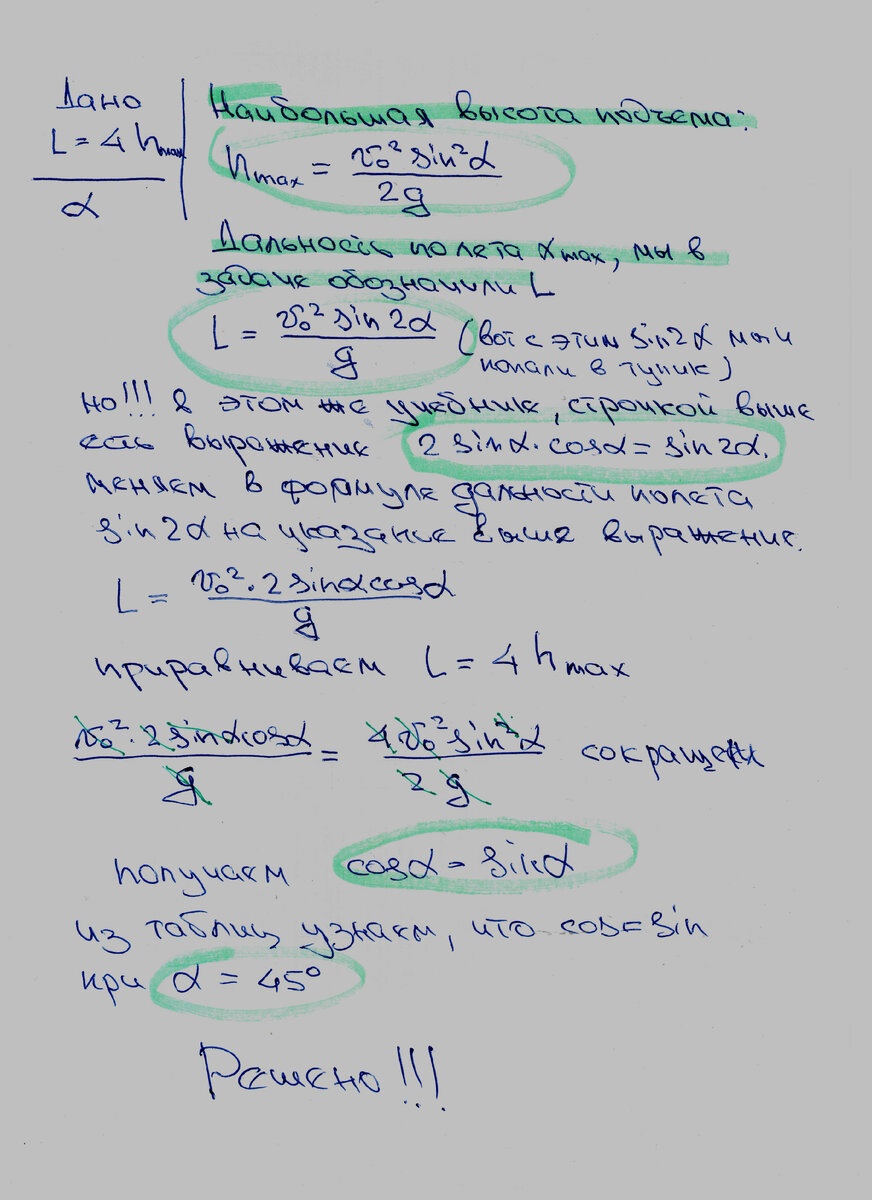 Дано
L = 4 hmax
α
Наибольшая высота подъема:
hmax = v₀² sin²α / 2g
Дальность полета xmax, мы в
задаче обозначили L
L = v₀² sin 2α / g (вот с этим sin2α мы и
попали в тупик)
но!!! в этом же учебнике, строкой выше
есть выражение 2 sinα · cosα = sin2α.
меняем в формуле дальности полета
sin 2α на указаное выше выражение.
L = v₀² · 2 sinα cosα / g
приравниваем L = 4 hmax
v₀² · 2 sinα cosα / g = 4 v₀² sin²α / 2 g сокращаем
получаем cosα = sinα
из таблиц узнаем, что cos = sin
при α = 45°
Решено!!!